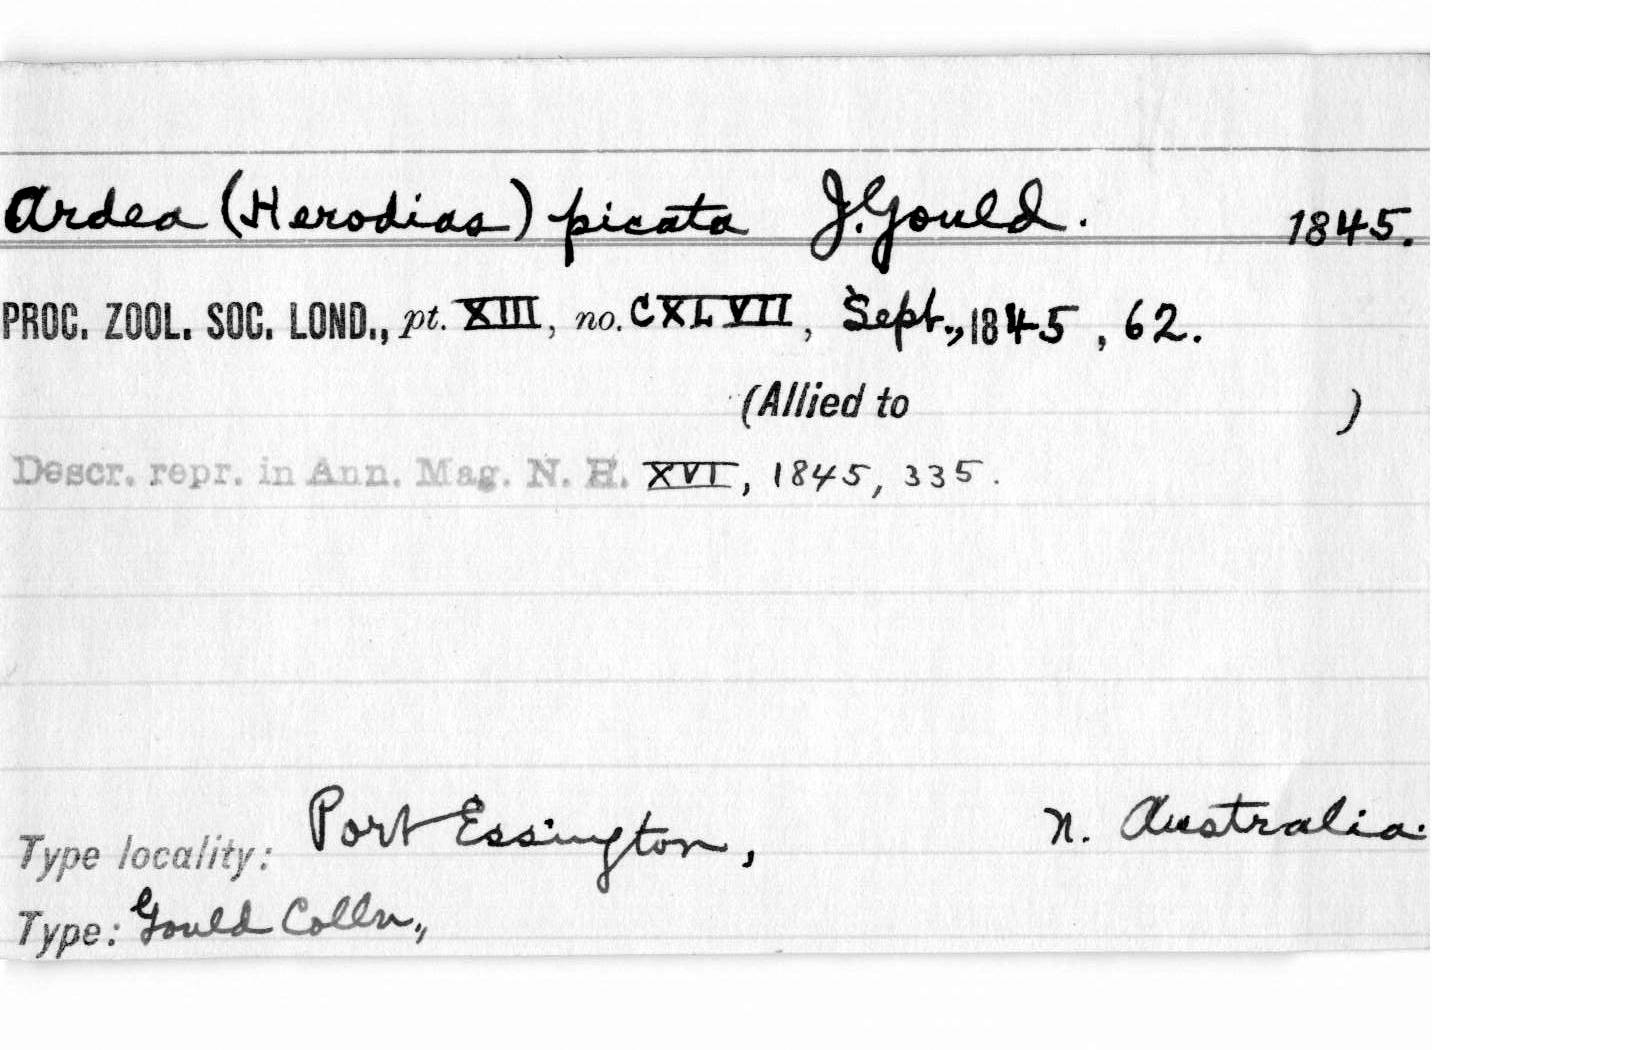 Ardea (Herodias) picata J. Gould. 1845.
PROC. ZOOL. SOC. LOND., pt. XIII, no. CXLVII, Sept., 1845, 62.
(Allied to )
Descr. repr. in Ann. Mag. N. H. XVI, 1845, 335.
Type locality: Port Essington, N. Australia.
Type: Gould Colln.,